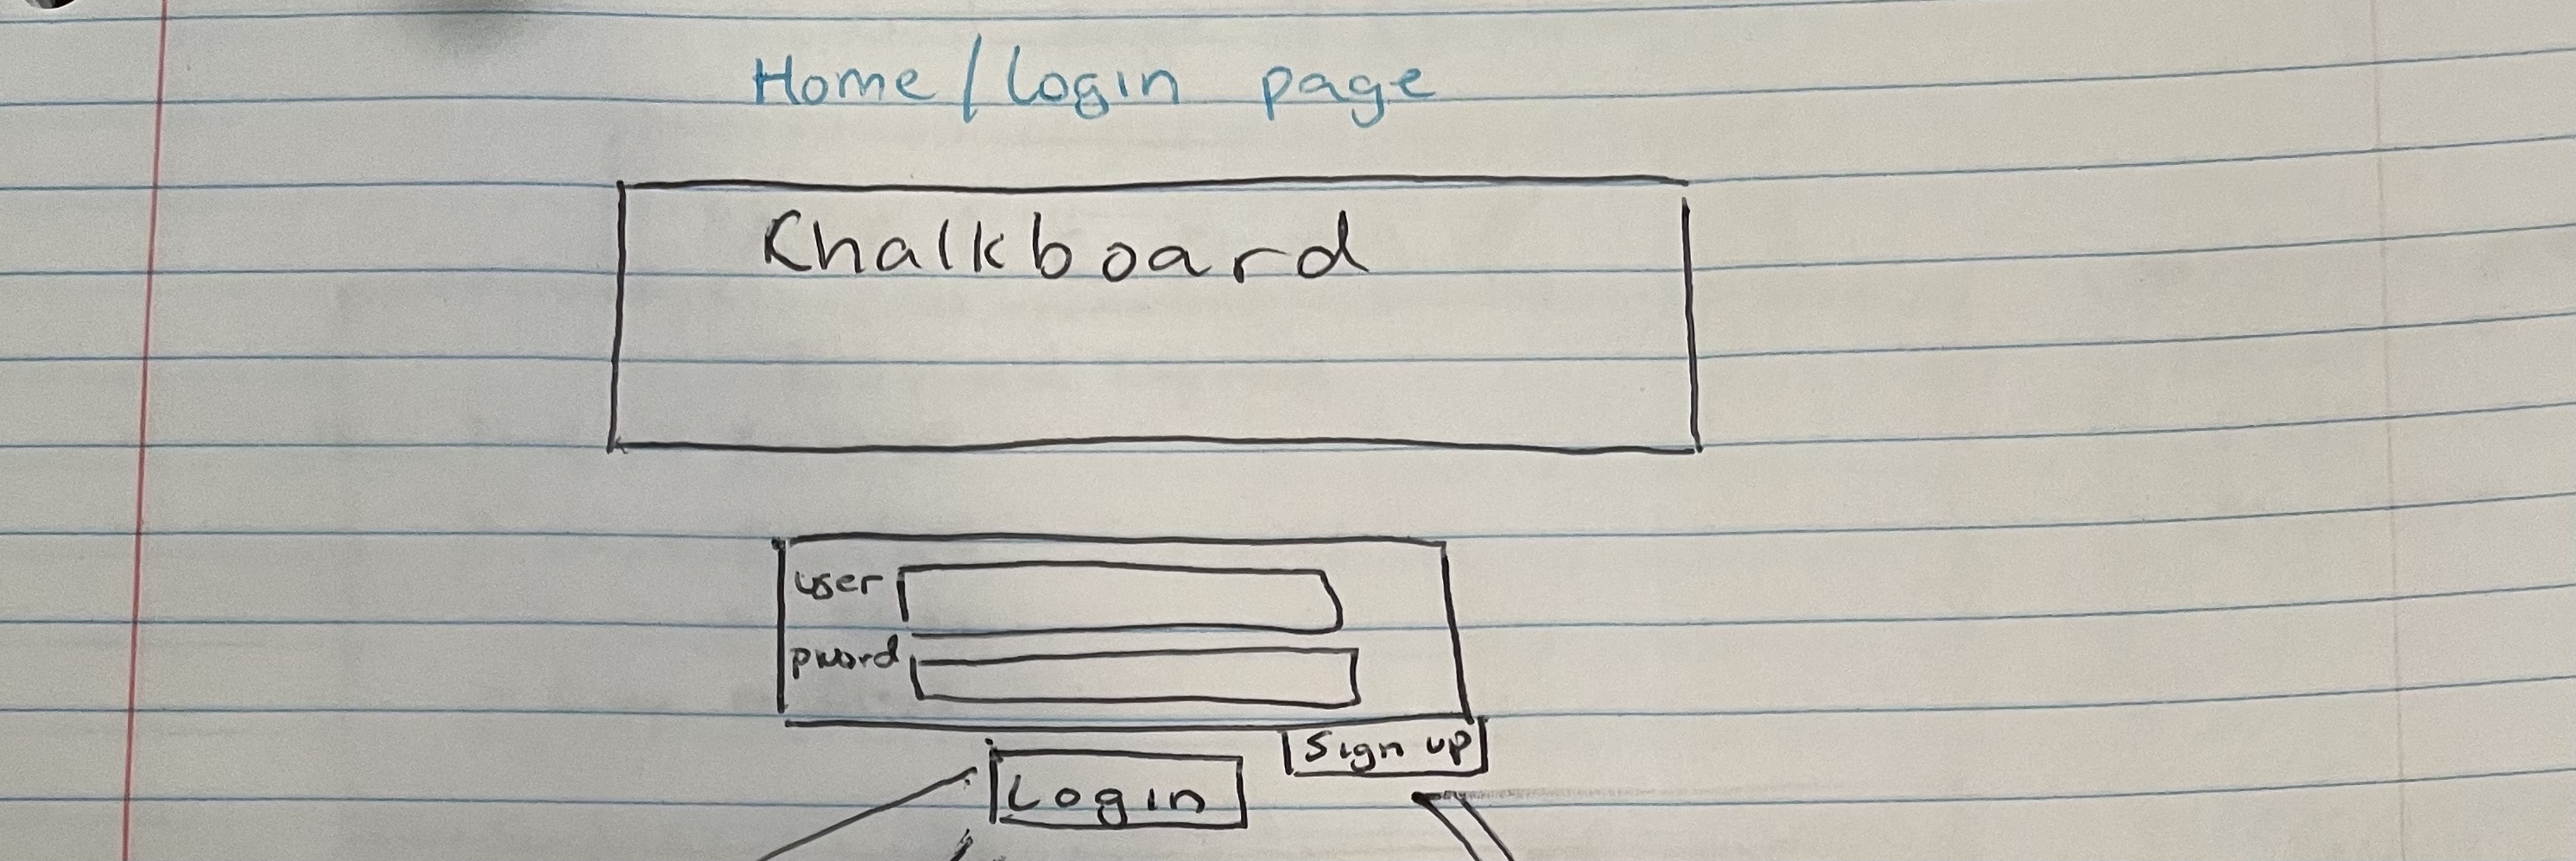 Home/Login page
Chalkboard
user
pword
Sign up
Login